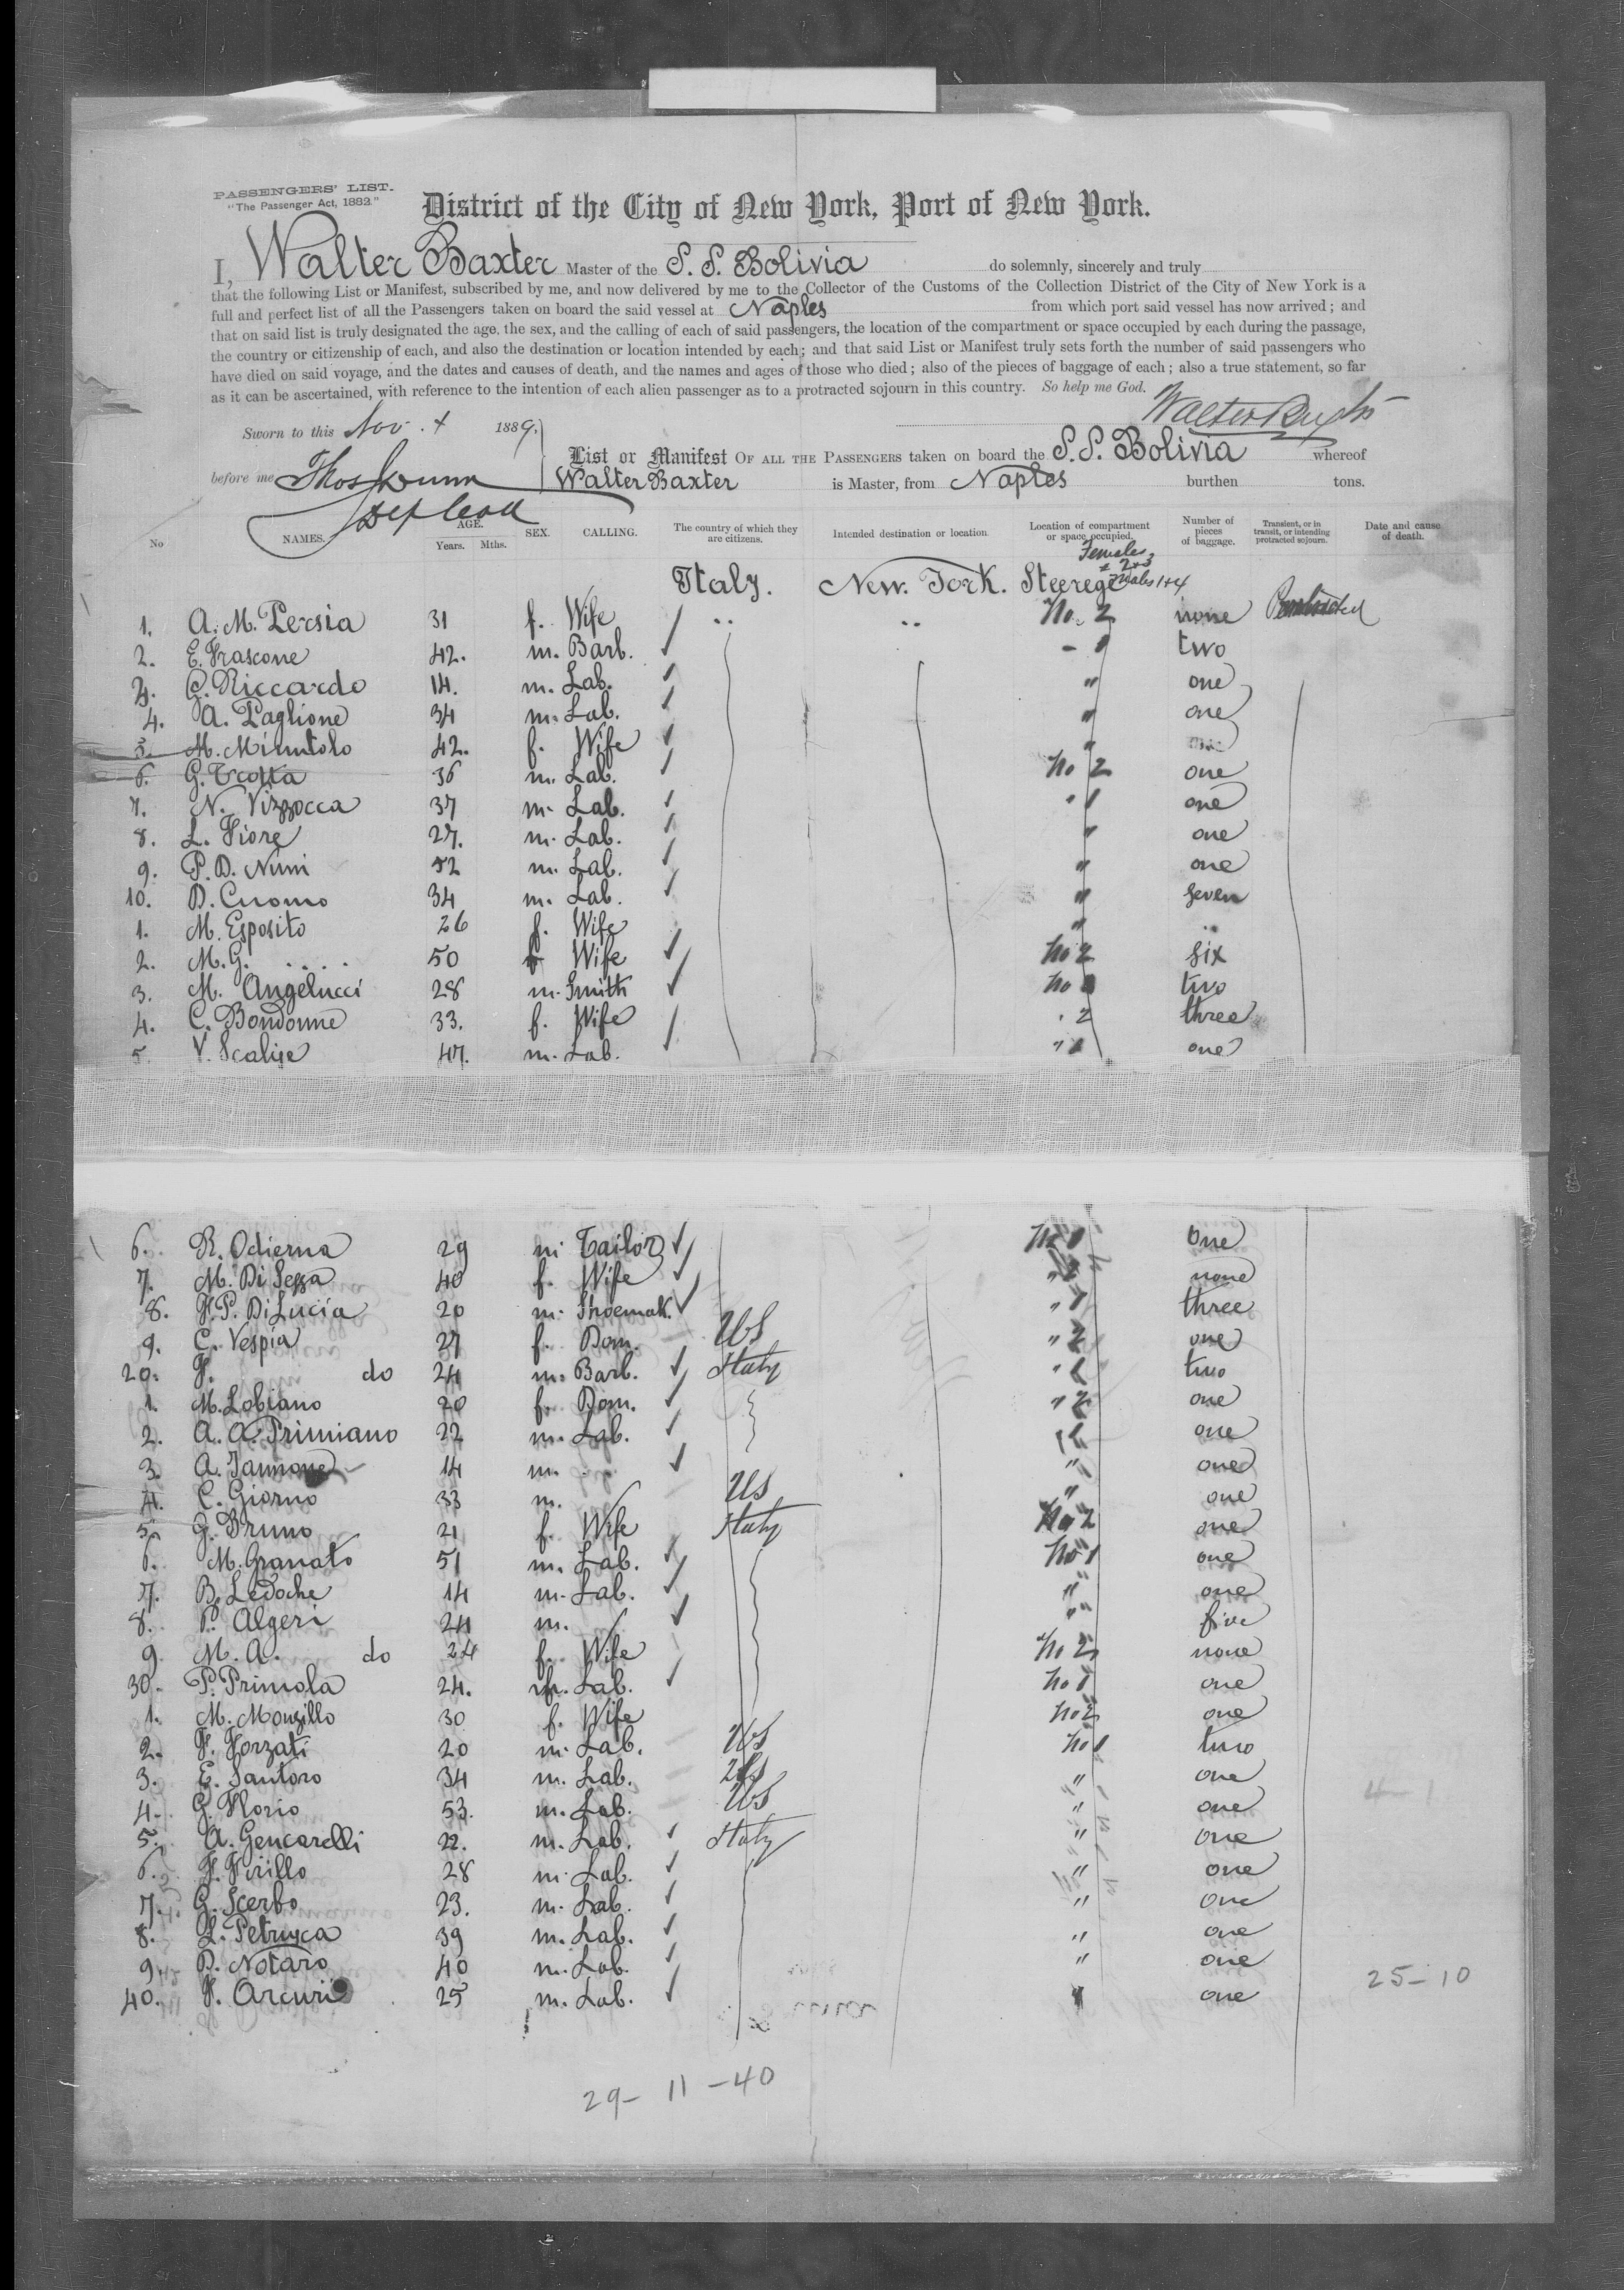 PASSENGERS' LIST.
"The Passenger Act, 1882."
District of the City of New York, Port of New York.
I, Walter Baxter Master of the S. S. Bolivia do solemnly, sincerely and truly
that the following List or Manifest, subscribed by me, and now delivered by me to the Collector of the Customs of the Collection District of the City of New York is a
full and perfect list of all the Passengers taken on board the said vessel at Naples from which port said vessel has now arrived; and
that on said list is truly designated the age, the sex, and the calling of each of said passengers, the location of the compartment or space occupied by each during the passage,
the country or citizenship of each, and also the destination or location intended by each; and that said List or Manifest truly sets forth the number of said passengers who
have died on said voyage, and the dates and causes of death, and the names and ages of those who died; also of the pieces of baggage of each; also a true statement, so far
as it can be ascertained, with reference to the intention of each alien passenger as to a protracted sojourn in this country. So help me God.
Walter Baxter
Sworn to this Nov. 4 1889,
before me Thos Dunn
List or Manifest OF ALL THE PASSENGERS taken on board the S. S. Bolivia whereof
Walter Baxter is Master, from Naples burthen tons.
No NAMES. AGE. Years. Mths. SEX. CALLING. The country of which they are citizens. Intended destination or location. Location of compartment or space occupied. Number of pieces of baggage. Transient, or in transit, or intending protracted sojourn. Date and cause of death.
Italy. New York. Steerage Females 2+3 Males 1+4
1. A. M. Persia 31 f. Wife No. 2 none Protracted
2. E. Frascone 42. m. Barb. - 1 two
3. G. Riccardo 14. m. Lab. " one
4. A. Paglione 34 m. Lab. " one
5. M. Minutolo 42. f. Wife "
6. G. Trotta 36 m. Lab. No 2 one
7. N. Vizzocca 37 m. Lab. " 1 one
8. L. Fiore 27. m. Lab. " one
9. P. D. Nuni 52 m. Lab. " one
10. D. Cuomo 34 m. Lab. " seven
1. M. Esposito 26 f. Wife " ..
2. M. G. .... 50 f Wife No 2 six
3. M. Angelucci 28 m. Smith No 1 two
4. C. Bondonne 33. f. Wife " 2 three
5. V. Scalise 47. m. Lab. " 1 one
6. R. Odierna 29 m Tailor No 1 one
7. M. Di Sessa 40 f. Wife " 2 none
8. F. P. Di Lucia 20 m. Shoemak. " 1 three
9. C. Vespia 27 f. Dom. US " 2 one
20. F. do 24 m. Barb. Italy " 1 two
1. M. Lobiano 20 f. Dom. " 2 one
2. A. A. Primiano 22 m. Lab. " 1 one
3. A. Iannone 14 m. .. " one
4. C. Giorno 33 m. US " one
5. G. Bruno 21 f. Wife Italy No 2 one
6. M. Granato 51 m. Lab. No 1 one
7. B. Ledoche 14 m. Lab. " one
8. P. Algeri 24 m. " five
9. M. A. do 24 f. Wife No 2 none
30. P. Primola 24. m. Lab. No 1 one
1. M. Monzillo 30 f. Wife No 2 one
2. F. Forzati 20 m. Lab. US No 1 two
3. E. Santoro 34 m. Lab. US " one
4. G. Florio 53. m. Lab. US " one
4-1
5. A. Gencarelli 22. m. Lab. Italy " one
6. F. Firillo 28 m. Lab. " one
7. G. Scerbo 23. m. Lab. " one
8. L. Petrusca 39 m. Lab. " one
9. D. Notaro 40 m. Lab. " one
40. F. Arcuri 25 m. Lab. " one
25-10
29- 11 -40